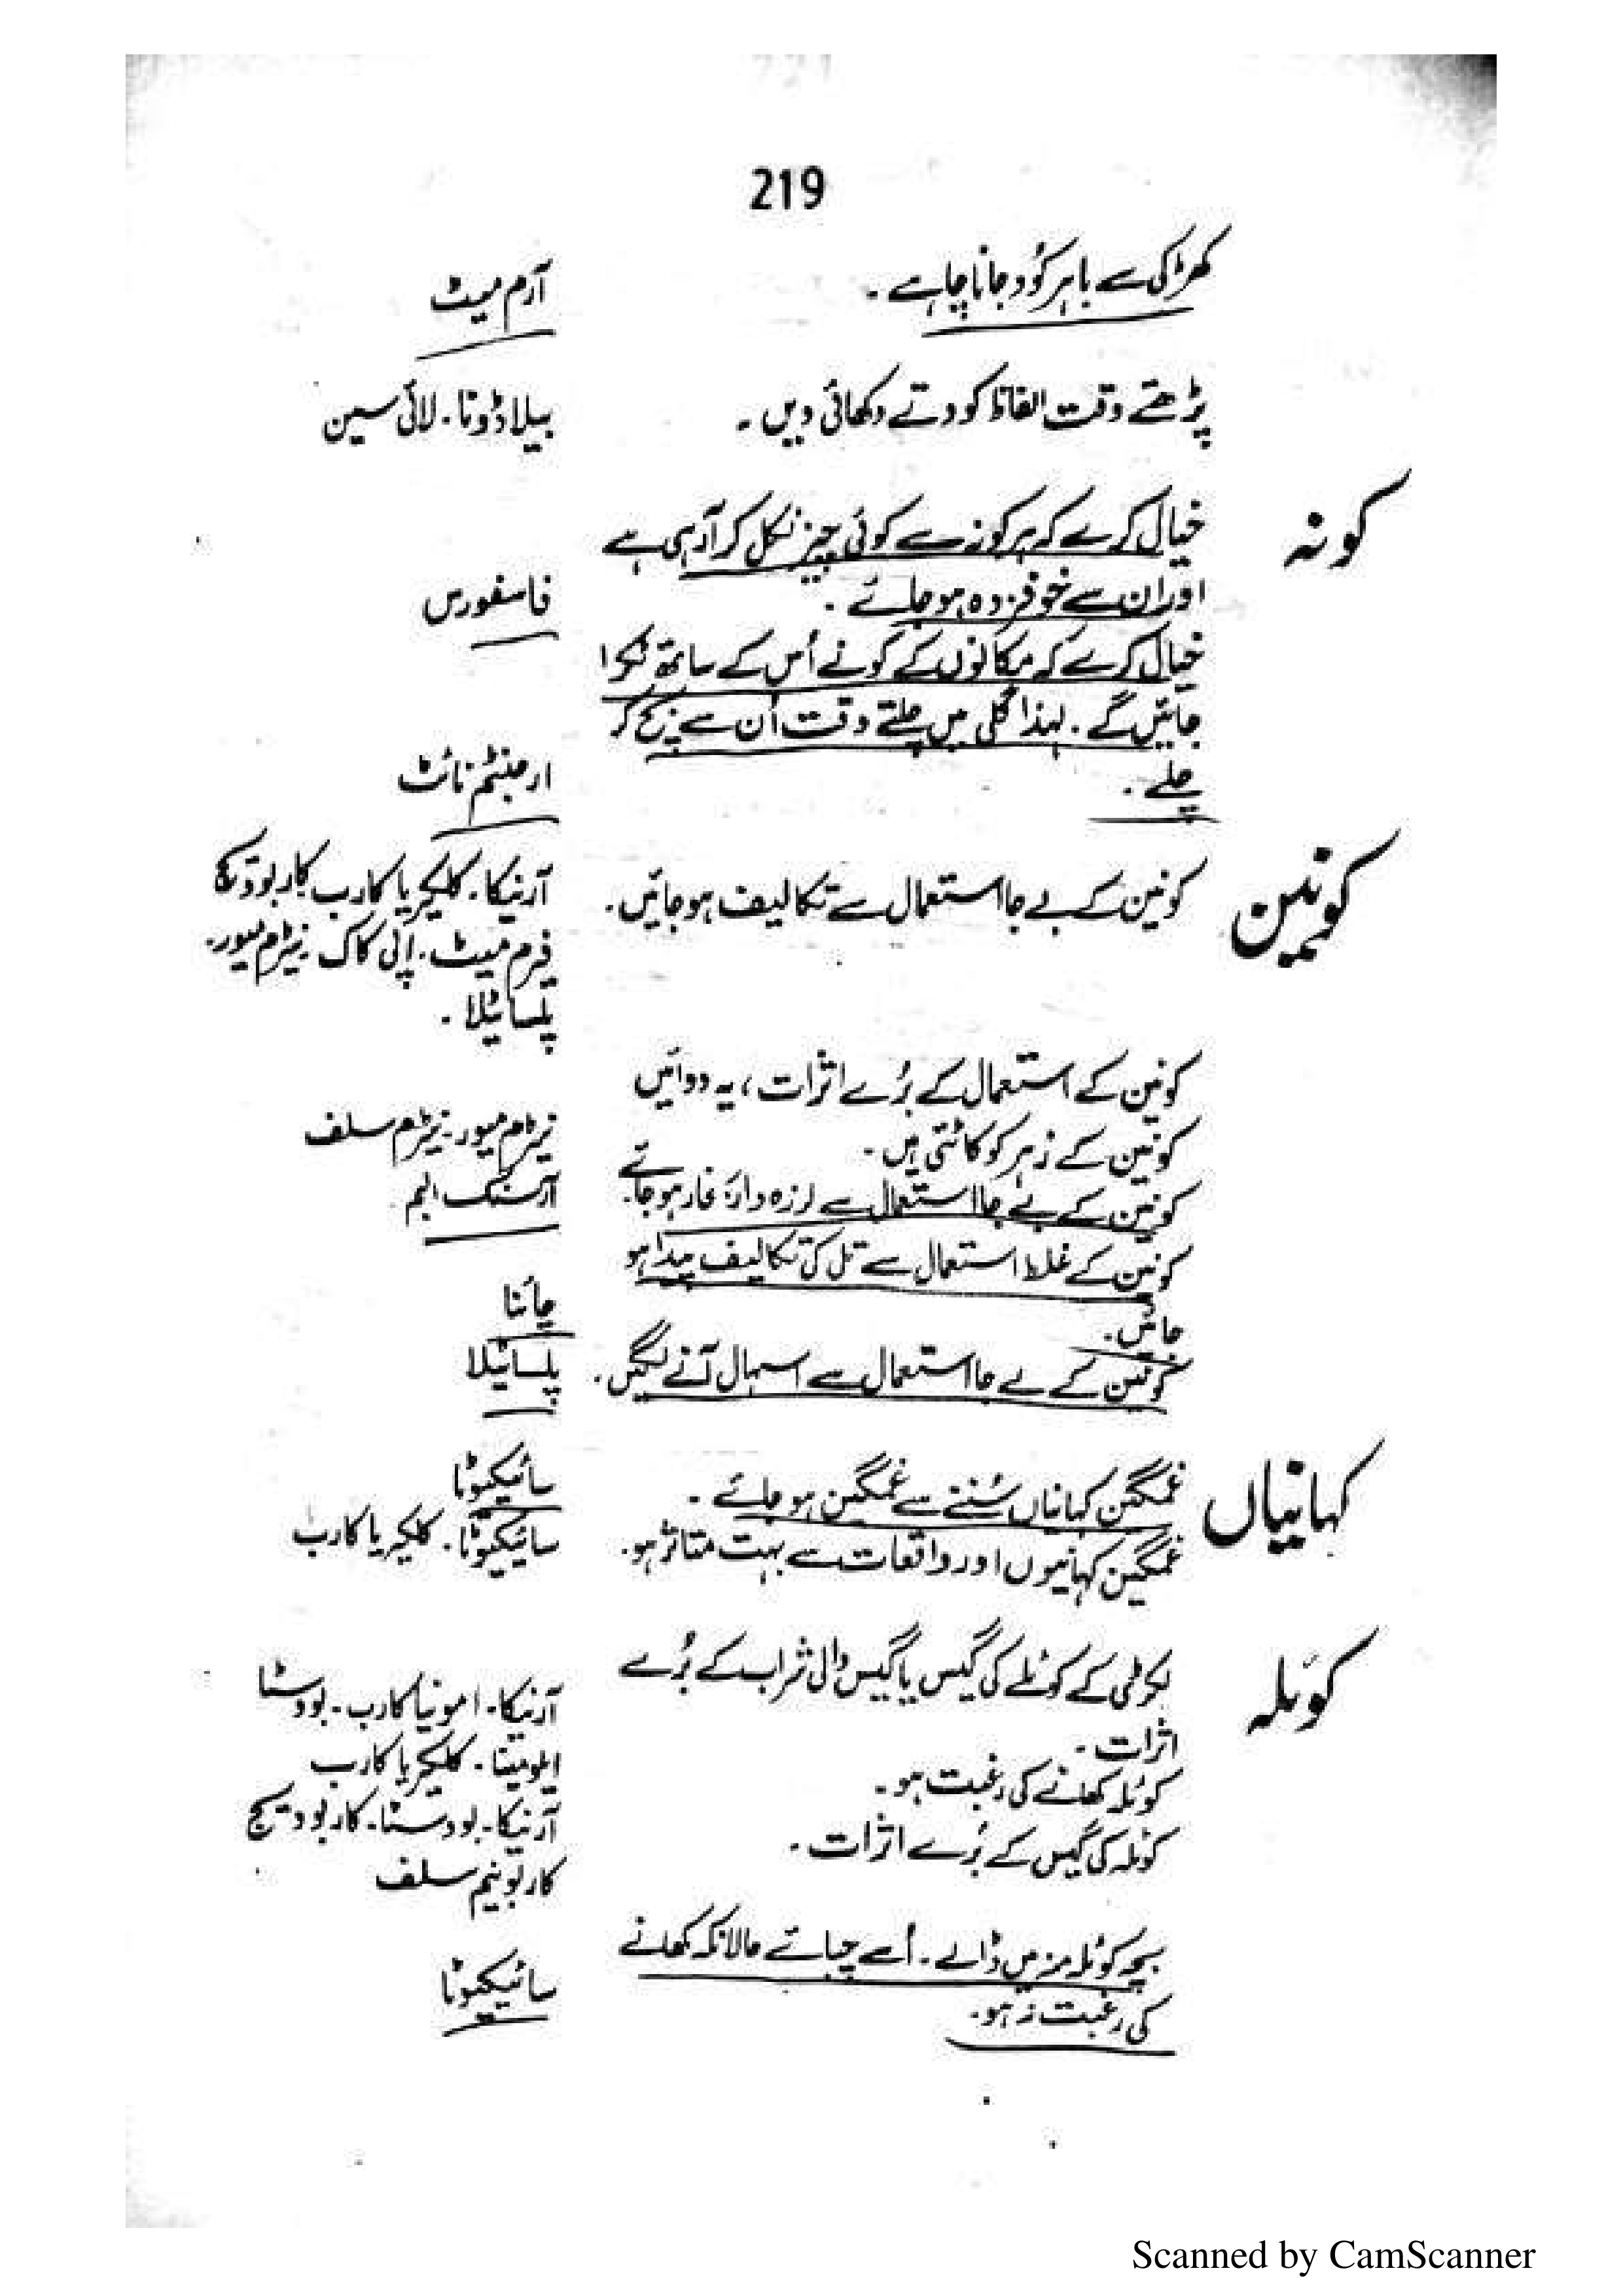 219
کھڑکی سے باہر کُود جانا چاہے ۔ آرم میٹ
پڑھتے وقت الفاظ کودتے دکھائی دیں ۔ بیلاڈونا ۔ لائی سین
کونہ خیال کرے کہ ہر کونہ سے کوئی چیز نکل کر آرہی ہے
اور ان سے خوفزدہ ہو جائے ۔ فاسفورس
خیال کرے کہ مکانوں کے کونے اُس کے ساتھ ٹکرا
جائیں گے ۔ لہذا گلی میں چلتے وقت اُن سے بچ کر
چلے ۔ ارجنٹم نائٹ
کونین کونین کے بے جا استعمال سے تکالیف ہو جائیں ۔ آرنیکا ۔ کلیکریا کارب کاربوویج
فرم میٹ ۔ اپی کاک ۔ نیٹرم میور ۔
پلساٹیلا ۔
کونین کے استعمال کے بُرے اثرات ، یہ دوائیں
کونین کے زہر کو کاٹتی ہیں ۔ نیٹرم میور ۔ نیٹرم سلف
کونین کے بے جا استعمال سے لرزہ دار بخار ہو جائے ۔ آرسنک البم
کونین کے غلط استعمال سے تلی کی تکالیف پیدا ہو
جائیں ۔ چائنا
کونین کے بے جا استعمال سے اسہال آنے لگیں ۔ پلساٹیلا
کہانیاں غمگین کہانیاں سُننے سے غمگین ہو جائے ۔ سائیکیوٹا
غمگین کہانیوں اور واقعات سے بہت متاثر ہو ۔ سائیکیوٹا ۔ کلیکریا کارب
کوئلہ لکڑی کے کوئلے کی گیس یا گیس والی شراب کے بُرے
اثرات ۔ آرنیکا ۔ امونیا کارب ۔ بووسٹا
کوئلہ کھانے کی رغبت ہو ۔ ایلومینا ۔ کلیکریا کارب
کوئلہ کی گیس کے بُرے اثرات ۔ آرنیکا ۔ بووسٹا ۔ کاربوویج
کاربونیم سلف
بچہ کوئلہ منہ میں ڈالے ۔ اُسے چبائے حالانکہ کھانے
کی رغبت نہ ہو ۔ سائیکیوٹا
Scanned by CamScanner